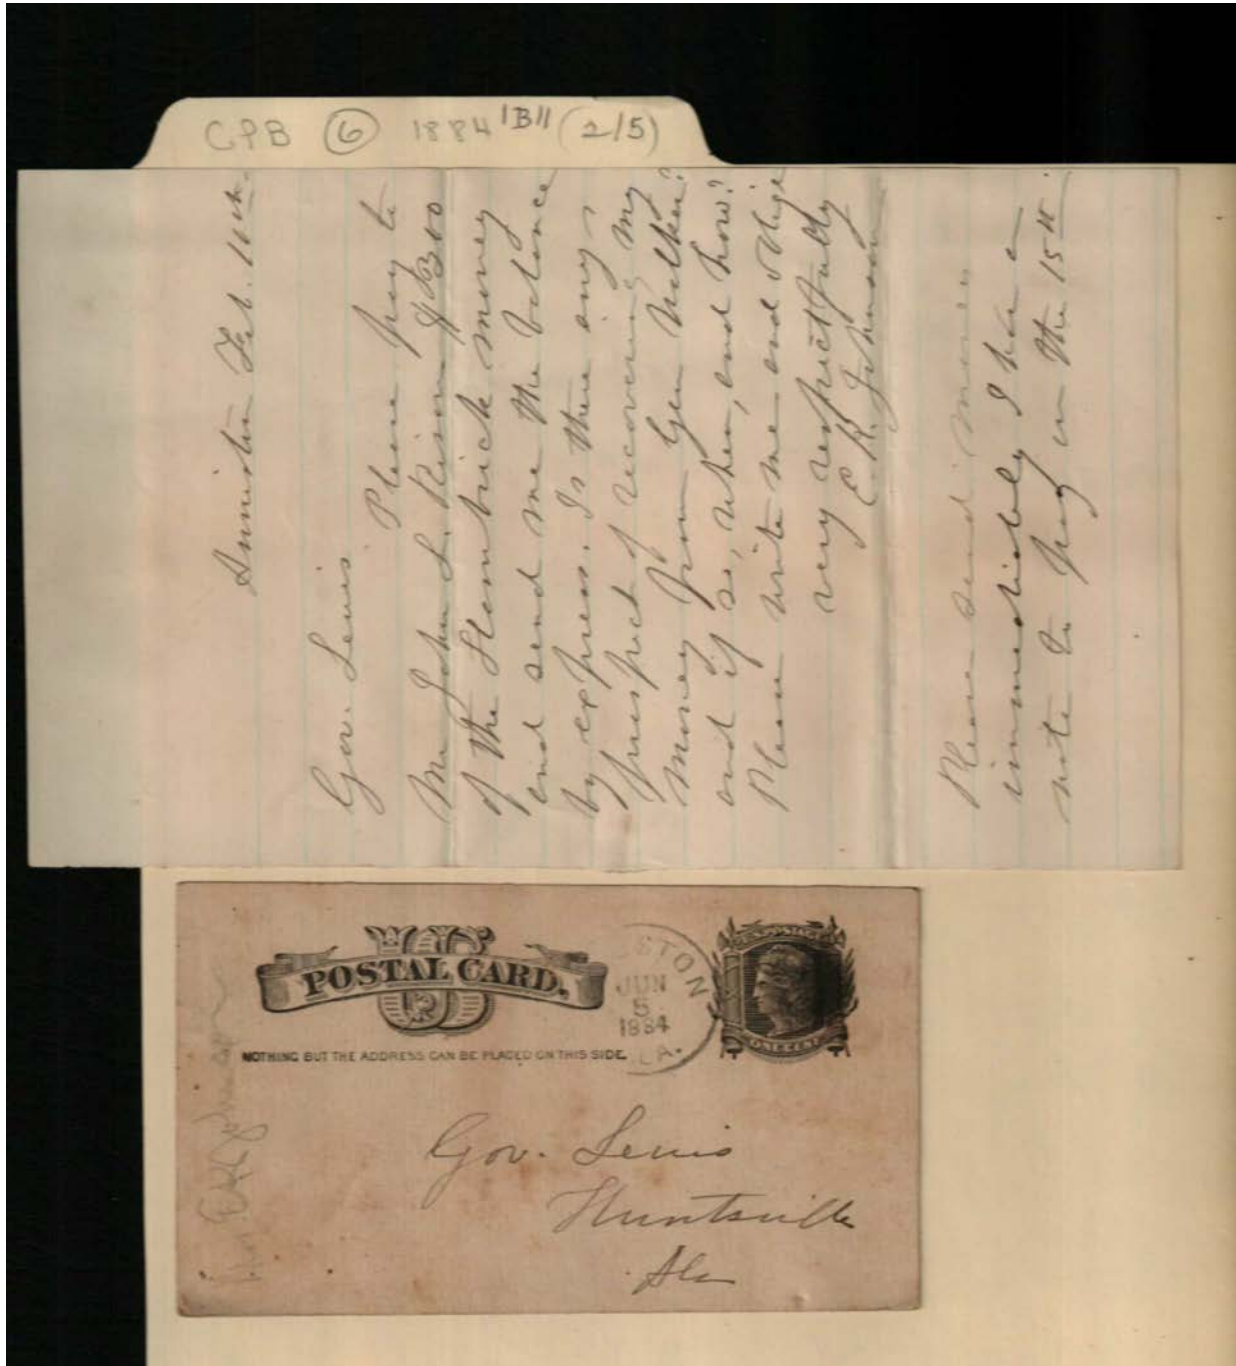 CPB 6 1884 "B" (2/5)
Anniston Feb. 10th.
Gov. Lewis
Please pay to
Mr John L. Rison $300
of the Hambrick money
and send me the balance
by express. Is there any
prospect of recovering my
money from Gen Walker?
and if so, when, and how?
Please write me and oblige
very respectfully
E. R. Johnson
Please send money
immediately I have a
note to pay on the 15th.
U S
POSTAL CARD.
NOTHING BUT THE ADDRESS CAN BE PLACED ON THIS SIDE.
STON
JUN
5
1884
LA.
U.S. POSTAGE
ONE CENT
Gov. Lewis
Huntsville
Ala
Johnson